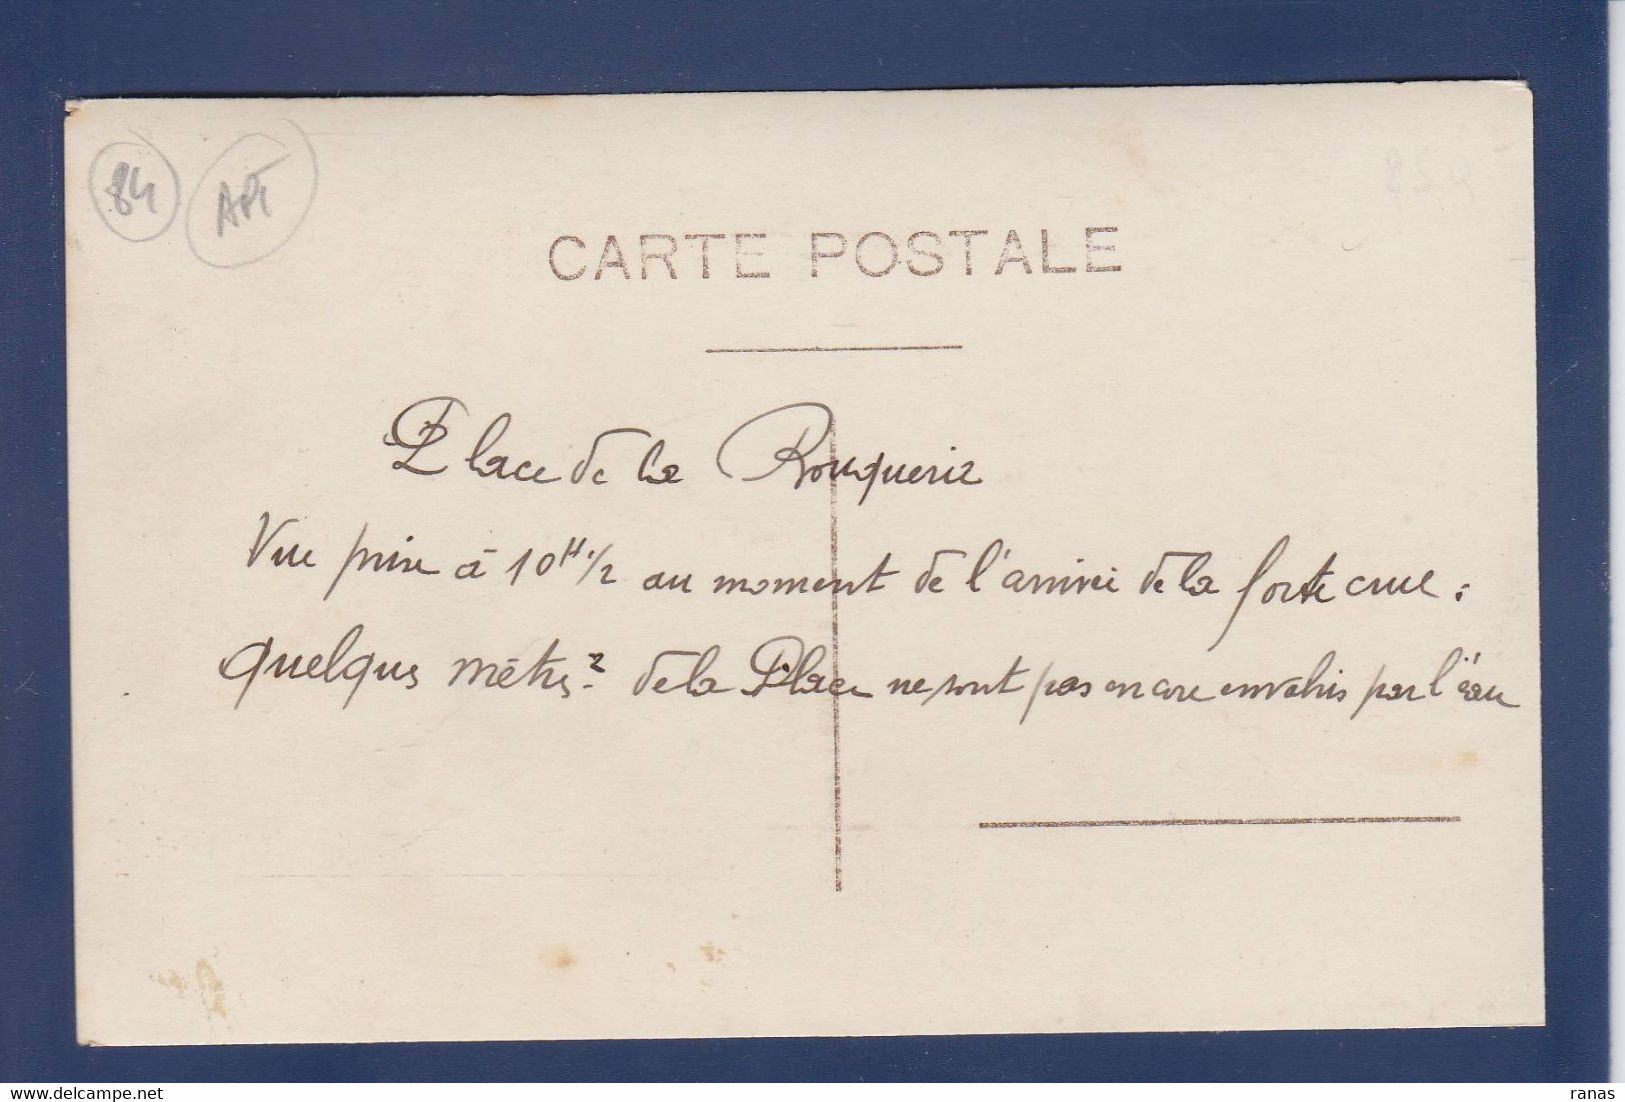 84 APT
CARTE POSTALE
Place de la Bouquerie
Vue prise à 10H 1/2 au moment de l'arrivée de la forte crue :
quelques mètres2 de la Place ne sont pas encore envahis par l'eau
ranas